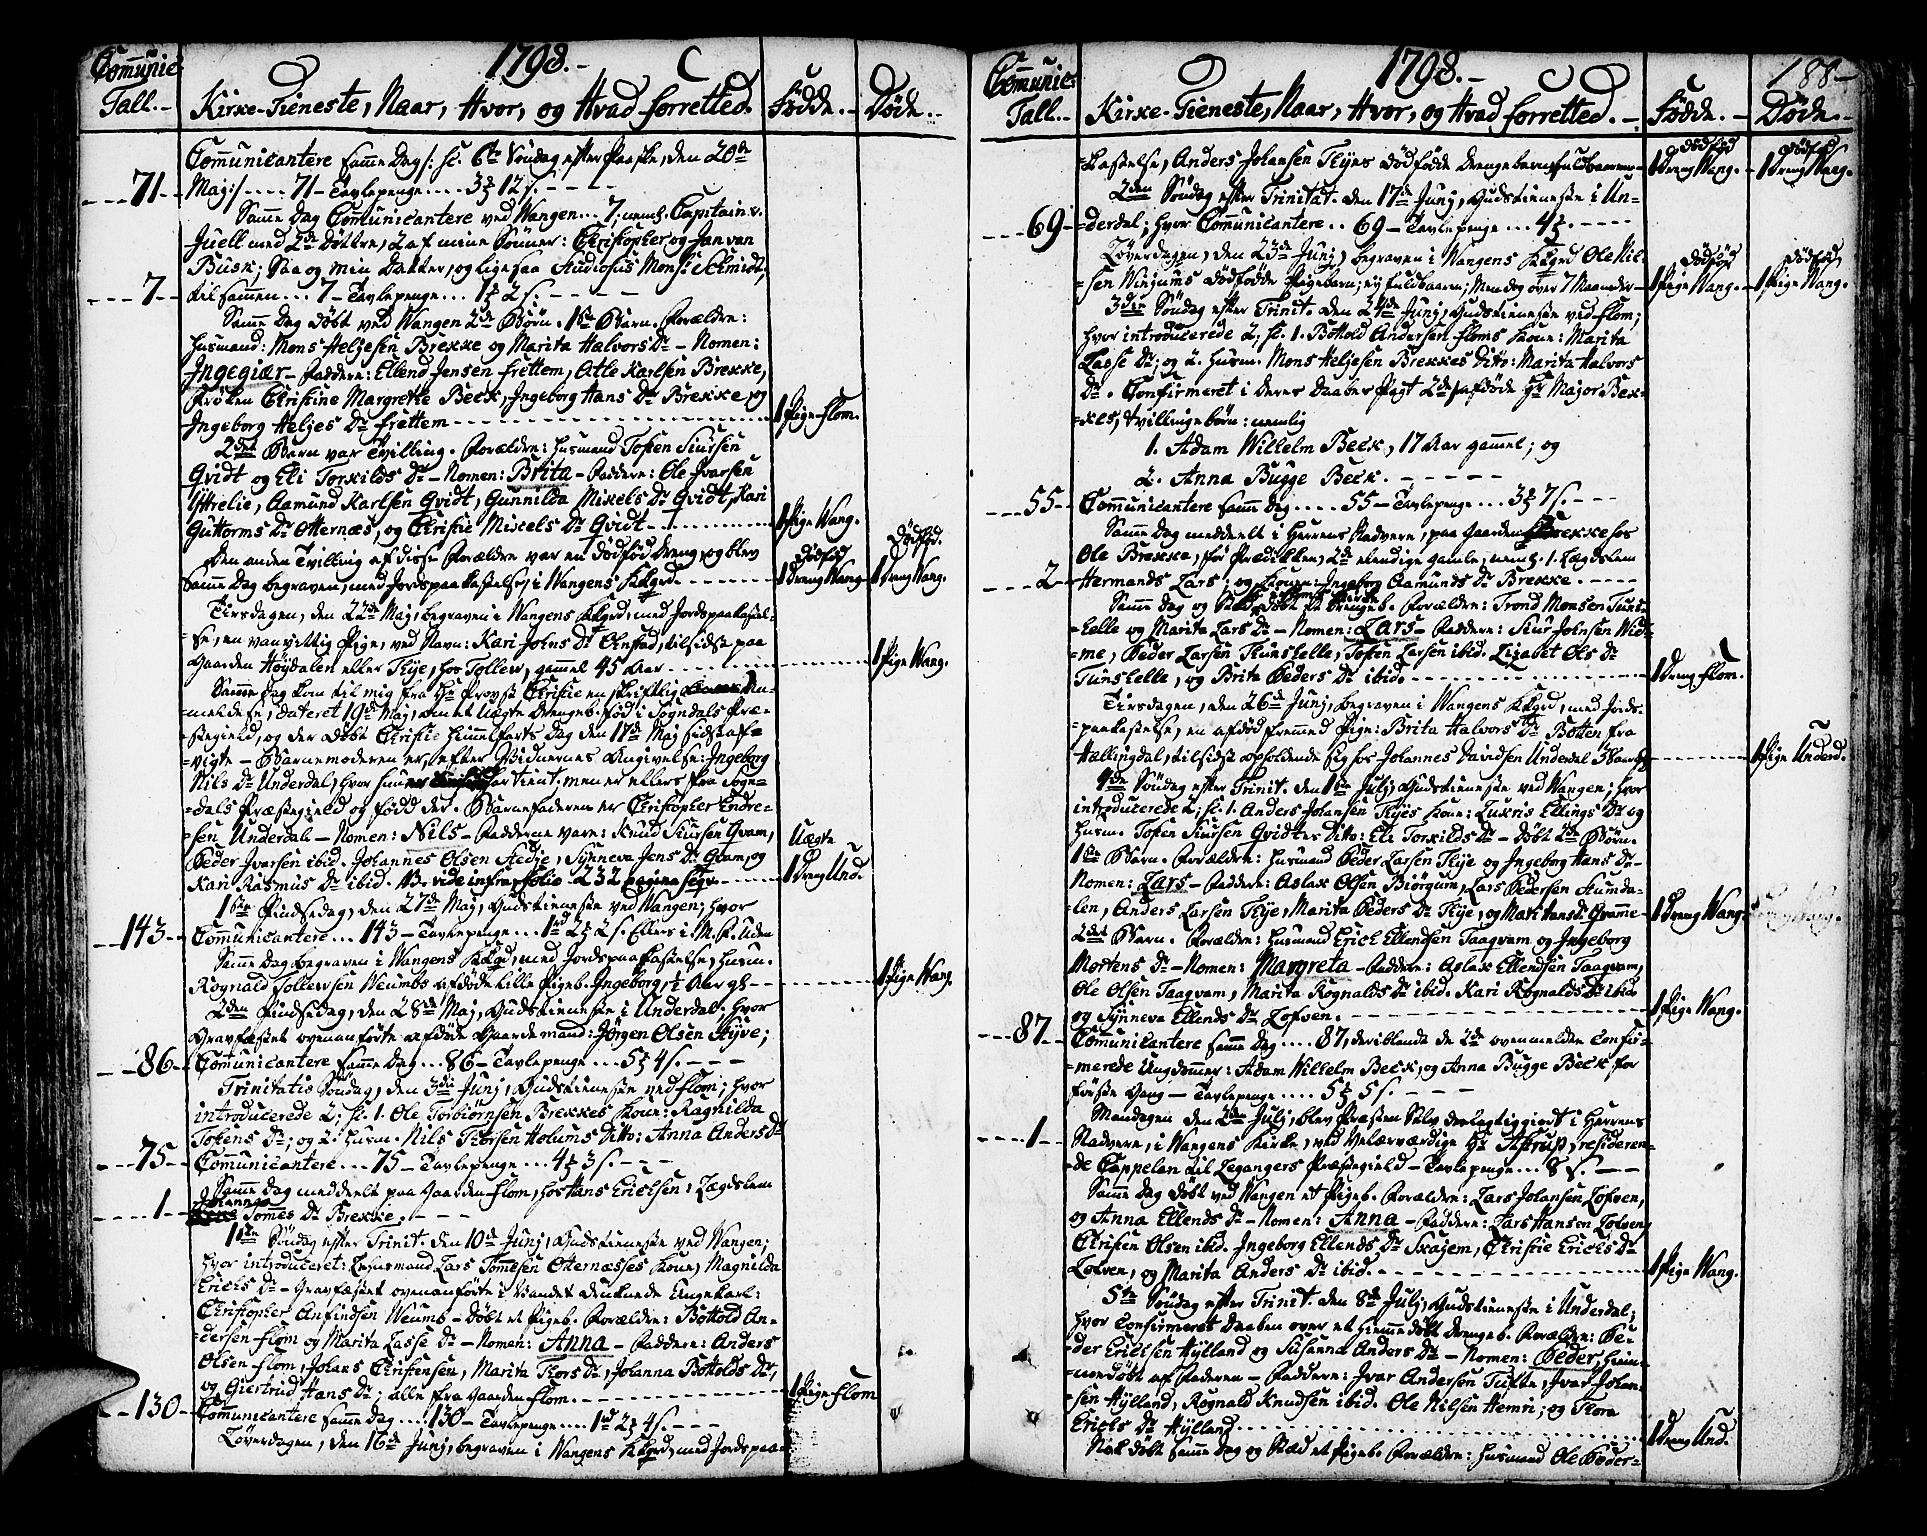 1798.
Comunic:
Tall. Kirke-Tieneste, Naar, Hvor, og Hvad forretted. Fødde. Døde.
Communicantere samme Dag /: sc. 6te Søndag efter Paaske, den 20de
71 Maj :/ .... 71 - Tavlepenge .... 3 12 s.
Samme Dag Communicantere ved Wangen ... 7, neml. Capitain v.
Juell med 2de Døttre, 2 af mine Sønner: Christopher og Jan van
Busk; Saa og min Datter, og ligesaa Studiosus Mons: Schmidt,
7 tilsammen ... 7 - Tavlepenge ... 1 2 s.
Samme Dag døbt ved Wangen 2de Børn. 1ste Barn. Forældre:
Husmand: Mons Heljesen Brekke og Marita Halvors Dr - Nomen:
Ingegiær - Faddere: Ellend Jensen Frettem, Atle Karlsen Brekke,
Frøken Christine Margrethe Beck, Ingeborg Hans Dr Brekke og
Ingeborg Heljes Dr Frettem 1 Pige Flom.
2det Barn var Tvilling. Forældre: Husmand Tosten Siursen
Qvidt og Eli Torkilds Dr - Nomen: Brita - Faddere: Ole Ivarsen
Ytrelie, Aamund Karlsen Qvidt, Gunnilda Mikels Dr Qvidt, Kari
Guttorms Dr Otternæs, og Christie Mikels Dr Qvidt 1 Pige Wang.
Den anden Tvilling af disse Forældre var en dødfød Dreng, og blev dødfød Dødfød.
samme Dag begraven, med Jordspaakastelse, i Wangens KKgrd. 1 Dreng Wang. 1 Dreng Wang.
Tirsdagen, den 22de Maj, begraven i Wangens KKgrd, med Jordspaakastel-
se, en vanvittig Pige, ved Navn: Kari Johns Dr Onstad, tilsidst paa
Gaarden Høydalen eller Skje, hos Tollew, gammel 45 Aar 1 Pige Wang.
Samme Dag kom til mig fra Hr Provst Christie en skriftlig An-
meldelse, dateret 19de Maj, om et Uægte Drengeb. fød i Sogndals Præ-
stegield, og der døbt Christie Himmelfarts Dag den 17de Maj sidst af-
vigte - Barnemoderen er, efter Vidnernes Angivelse: Ingeborg
Nils Dr Underdal, hvor hun har tient, men er ellers fra Sogn-
dals Præstegield og fødd der. Barnefaderen er Christopher Endre-
sen Underdal - Nomen: Nils - Fadderne vare: Knud Siursen Qvam, Uægte
Peder Ivarsen ibid. Johannes Olsen Stedje, Synneva Jens Dr Qvam, og 1 Dreng Und.
Kari Rasmus Dr ibid. NB. vide infra folio 232 pagina seqv.
1ste Pindsedag, den 27de Maj, Gudstieneste ved Wangen; hvor
143 Communicantere ... 143 - Tavlepenge ... 1 2 2 s. Ellers i M. K. Uden
Samme Dag begraven i Wangens KKgrd, med Jordspaakastelse, Husm.
Rognald Tollewsen Weumbs afdøde lille Pigeb. Ingeborg, ½ Aar gl 1 Pige Wang.
2den Pindsedag, den 28de Maj, Gudstieneste i Underdal; hvor
Gravfæstet ovenanførte afdøde Gaardemand: Jørgen Olsen Styve;
86 Communicantere samme Dag ... 86 - Tavlepenge ... 5 4 s.
Trinitatis Søndag, den 3die Junj, Gudstieneste ved Flom; hvor
introducerede 2; sc. 1. Ole Torbiørnsen Brekkes Kone: Ragnilda
Tostens Dr; og 2. Husm. Nils Thorsen Holums Ditto: Anna Anders Dr
75 Communicantere ... 75 - Tavlepenge ... 4 3 s.
Samme Dag meddeelt paa Gaarden Flom, hos Hans Erichsen, Lægdslem
1 Johanna Tomes Dr Brekke.
1ste Søndag efter Trinit. den 10de Junj, Gudstieneste ved Wangen;
hvor introduceret: Huusmand Lars Tomesen Otternæsses Kone, Magnilda
Erichs Dr - Gravfæstet ovenanførte i Vandet druknede Ungekarl:
Christopher Anfindsen Weumb - Døbt et Pigeb. Forældre: Botthold An-
dersen Flom og Marita Lasse Dr - Nomen: Anna - Faddere: Anders
Olsen Flom, Johans Christensen, Marita Thors Dr, Johanna Bottolds Dr,
og Giertrud Hans Dr; alle fra Gaarden Flom. 1 Pige Flom
130 Communicantere samme Dag .... 130 - Tavlepenge .... 1 2 4 s.
Løverdagen, den 16de Junj, begraven i Wangens KKgrd, med Jordspaa-
1798. 188
Comunic:
Tall. Kirke-Tieneste, Naar, Hvor, og Hvad forretted. Fødde. Døde.
kastelse, Anders Johansen Skjes dødfødde Drengebarn fuldbaaren dødfød 1 Dreng Wang. dødfød 1 Dreng Wang.
2den Søndag efter Trinitat. den 17de Junj, Gudstieneste i Un-
69 derdal; hvor Communicantere .. 69 - Tavlepenge ... 4
Løverdagen, den 23de Junj, begraven i Wangens KKgrd Ole Nil- dødfød dødfød
sen Winjums dødfødde Pigebarn; ey fuldbaaren; Men dog over 7 Maaneder 1 Pige Wang. 1 Pige Wang.
3die Søndag efter Trinit. den 24de Junj, Gudstieneste ved Flom;
hvor introducerede 2; sc. 1. Bothold Andersen Floms Kone: Marita
Lasse Dr; og 2. Husm. Mons Heljesen Brekkes Dito: Marita Halvors
Dr. Confirmeret i deres Daabes Pagt 2de afdøde Hr Major Bec-
kes, tvillingebørn: nemlig
1. Adam Wilhelm Beck, 17 Aar gammel; og
2. Anna Bugge Beck.
55 Communicantere samme Dag .... 55 - Tavlepenge ... 3 7 s.
Samme Dag meddeelt i Herrens Nadvere, paa Gaarden Brekke hos
Ole Brekke, før Prædikken, 2de elendige gamle, neml. 1. Lægdslem
2 Hermands Lars; og Konen: Ingeborg Aamunds Dr Brekke.
Samme Dag og Sted døbt et Drengeb. Forældre: Trond Monsen Tuns-
helle og Marita Lars Dr - Nomen: Lars - Faddere: Siur Johnsen Wid-
me, Peder Larsen Tunshelle, Tosten Larsen ibid. Lizabet Ols Dr
Tunshelle, og Brita Peders Dr ibid. 1 Dreng Flom.
Tirsdagen, den 26de Junj, begraven i Wangens KKgrd, med Jords-
paakastelse, en afdød fremmed Pige: Brita Halvors Dr Botten fra
Hallingdal, tilsidst opholdende sig hos Johannes Davidsen Underdal 1 Pige Underd.
4de Søndag efter Trinit. den 1ste Julj, Gudstieneste ved Wangen; hvor
introducerede 2; sc. 1. Anders Johansen Skjes Kone: Lukris Ellings Dr og
Husm. Tosten Siursen Qvidtes Dito: Eli Torkilds Dr - Døbt 2de Børn.
1ste Barn. Forældre: Husmand Peder Larsen Skje og Ingeborg Hans Dr -
Nomen: Lars - Faddere: Aslak Olsen Biørgum, Lars Pedersen Stunda-
len, Anders Larsen Skje, Marita Peders Dr Skje, og Mari Hans Dr Qvamme 1 Dreng Wang.
2det Barn. Forældre: Husmand Erich Ellendsen Taagvam og Ingeborg
Mortens Dr - Nomen: Margreta - Faddere: Aslak Ellendsen Taagvam,
Ole Olsen Taagvam, Marita Rognalds Dr ibid. Kari Rognalds Dr ibid.
og Synneva Ellends Dr Lofven. 1 Pige Wang.
87 Communicantere samme Dag .... 87, deriblandt de 2de ovenmeldte Confir-
merede Ungdommer: Adam Wilhelm Beck, og Anna Bugge Beck, for
første Gang - Tavlepenge .... 5 5 s.
Mandagen den 2den Julj, blev Præsten Selv deelagtiggiort i Herrens
1 Nadvere, i Wangens Kirke, ved Velærværdige Hr Astrup, residéren-
de Cappelan til Legangers Præstegield - Tavlepenge ... 8 s.
Samme Dag døbt ved Wangen et Pigeb. Forældre: Lars Johansen Lofven,
og Anna Ellends Dr - Nomen: Anna - Faddere: Lars Hansen Lofven,
Christen Olsen ibid. Ingeborg Ellends Dr Skajem, Christie Erichs Dr
Lofven, og Marita Anders Dr ibid. 1 Pige Wang.
5te Søndag efter Trinit. den 8de Julj, Gudstieneste i Underdal;
hvor Confirmeret Daaben over et hiemmedøbt Drengeb. Forældre: Pe-
der Erichsen Hylland og Susanna Anders Dr - Nomen: Peder, hiem-
medøbt af Faderen - Faddere: Ivar Andersen Tufte, Ivar Johan-
sen Hylland, Rognald Knudsen ibid. Ole Nilsen Hemri; og Thora
Erichs Dr Hylland 1 Dreng Und.
Nok døbt samme Dag og Stæd et Pigeb. Forældre: Husmand Ole Peder-